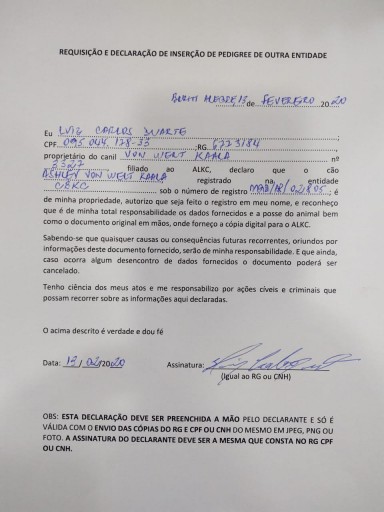 REQUISIÇÃO E DECLARAÇÃO DE INSERÇÃO DE PEDIGREE DE OUTRA ENTIDADE
BURITI ALEGRE, 13 de FEVEREIRO 20 20
Eu LUIZ CARLOS DUARTE
CPF 095 044 178-33 ;RG 6773184
proprietário do canil VON WERT KAALA nº
3327 filiado ao ALKC, declaro que o cão
ASHLEY VON WERT KAALA registrado na entidade
CBKC sob o número de registro ; é
de minha propriedade, autorizo que seja feito o registro em meu nome, e reconheço
que é de minha total responsabilidade os dados fornecidos e a posse do animal bem
como o documento original em mãos, onde forneço a cópia digital para o ALKC.
Sabendo-se que quaisquer causas ou consequências futuras recorrentes, oriundos por
informações deste documento fornecido, serão de minha responsabilidade. E que ainda,
caso ocorra algum desencontro de dados fornecidos o documento poderá ser
cancelado.
Tenho ciência dos meus atos e me responsabilizo por ações cíveis e criminais que
possam recorrer sobre as informações aqui declaradas.
O acima descrito é verdade e dou fé
Data: 13 / 02/2020 Assinatura:
(Igual ao RG ou CNH)
OBS: ESTA DECLARAÇÃO DEVE SER PREENCHIDA A MÃO PELO DECLARANTE E SÓ É
VÁLIDA COM O ENVIO DAS CÓPIAS DO RG E CPF OU CNH DO MESMO EM JPEG, PNG OU
FOTO. A ASSINATURA DO DECLARANTE DEVE SER A MESMA QUE CONSTA NO RG CPF
OU CNH.